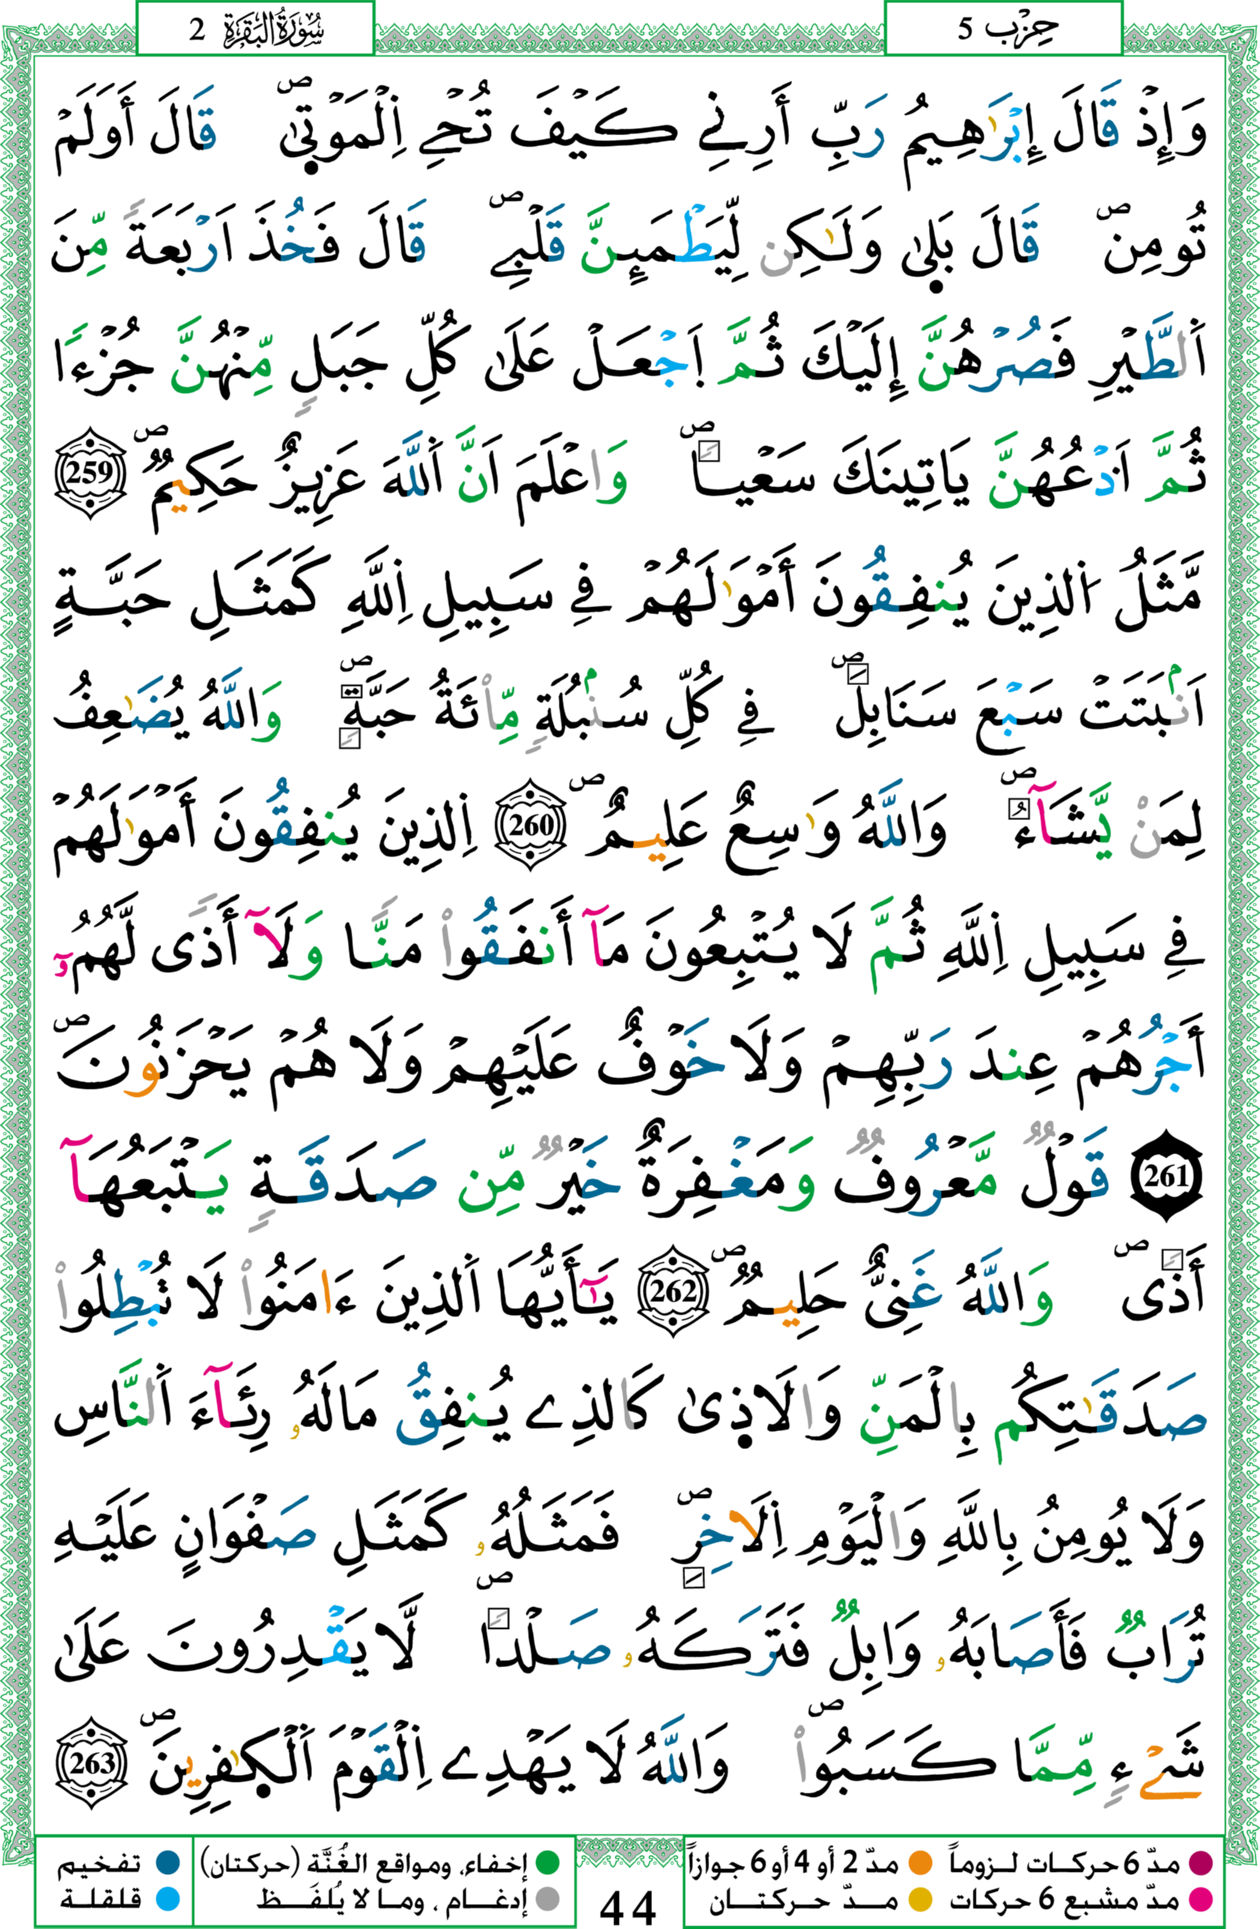 سُورَةُ الْبَقَرَةِ 2
حِزْب 5
وَإِذْ قَالَ إِبْرَٰهِيمُ رَبِّ أَرِنِے كَيْفَ تُحْےِ اِ۬لْمَوْت۪ىٰۖ قَالَ أَوَلَمْ
تُومِنۖ قَالَ بَل۪ىٰ وَلَٰكِن لِّيَطْمَئِنَّ قَلْبِےۖ قَالَ فَخُذَ اَرْبَعَةٗ مِّنَ
اَ۬لطَّيْرِ فَصُرْهُنَّ إِلَيْكَ ثُمَّ اَ۪جْعَلْ عَلَىٰ كُلِّ جَبَلٖ مِّنْهُنَّ جُزْءاٗ
ثُمَّ اَ۟دْعُهُنَّ يَاتِينَكَ سَعْياٗۖ وَاعْلَمَ اَنَّ اَ۬للَّهَ عَزِيزٌ حَكِيمٞۖ 259
مَّثَلُ اُ۬لذِينَ يُنفِقُونَ أَمْوَٰلَهُمْ فِے سَبِيلِ اِ۬للَّهِ كَمَثَلِ حَبَّةٍ
اَنۢبَتَتْ سَبْعَ سَنَابِلَۖ فِے كُلِّ سُنۢبُلَةٖ مِّاْئَةُ حَبَّةٖۖ وَاللَّهُ يُضَٰعِفُ
لِمَنْ يَّشَآءُۖ وَاللَّهُ وَٰسِعٌ عَلِيمٌۖ 260 اِ۬لذِينَ يُنفِقُونَ أَمْوَٰلَهُمْ
فِے سَبِيلِ اِ۬للَّهِ ثُمَّ لَا يُتْبِعُونَ مَآ أَنفَقُواْ مَنّاٗ وَلَآ أَذىٗ لَّهُمُۥٓ
أَجْرُهُمْ عِندَ رَبِّهِمْ وَلَا خَوْفٌ عَلَيْهِمْ وَلَا هُمْ يَحْزَنُونَۖ
261 قَوْلٞ مَّعْرُوفٞ وَمَغْفِرَةٌ خَيْرٞ مِّن صَدَقَةٖ يَتْبَعُهَآ
أَذىٗۖ وَاللَّهُ غَنِيٌّ حَلِيمٞۖ 262 يَٰٓأَيُّهَا اَ۬لذِينَ ءَامَنُواْ لَا تُبْطِلُواْ
صَدَقَٰتِكُم بِالْمَنِّ وَالَاذ۪ىٰ كَالذِے يُنفِقُ مَالَهُۥ رِئَآءَ اَ۬لنَّاسِ
وَلَا يُومِنُ بِاللَّهِ وَالْيَوْمِ اِ۬لَاخِرِۖ فَمَثَلُهُۥ كَمَثَلِ صَفْوَانٍ عَلَيْهِ
تُرَابٞ فَأَصَابَهُۥ وَابِلٞ فَتَرَكَهُۥ صَلْداٗۖ لَّا يَقْدِرُونَ عَلَىٰ
شَےْءٖ مِّمَّا كَسَبُواْۖ وَاللَّهُ لَا يَهْدِے اِ۬لْقَوْمَ اَ۬لْكٰ۪فِرِينَۖ 263
مدّ 6 حركات لـزوماً مدّ 2 أو 4 أو 6 جوازاً إخفاء، ومواقع الغُنَّة (حركتان) تفخيم
مدّ مشبع 6 حركات مـــدّ حـركتـــان إدغـــام ، ومـا لا يُلفَـــظ قلقلة
44